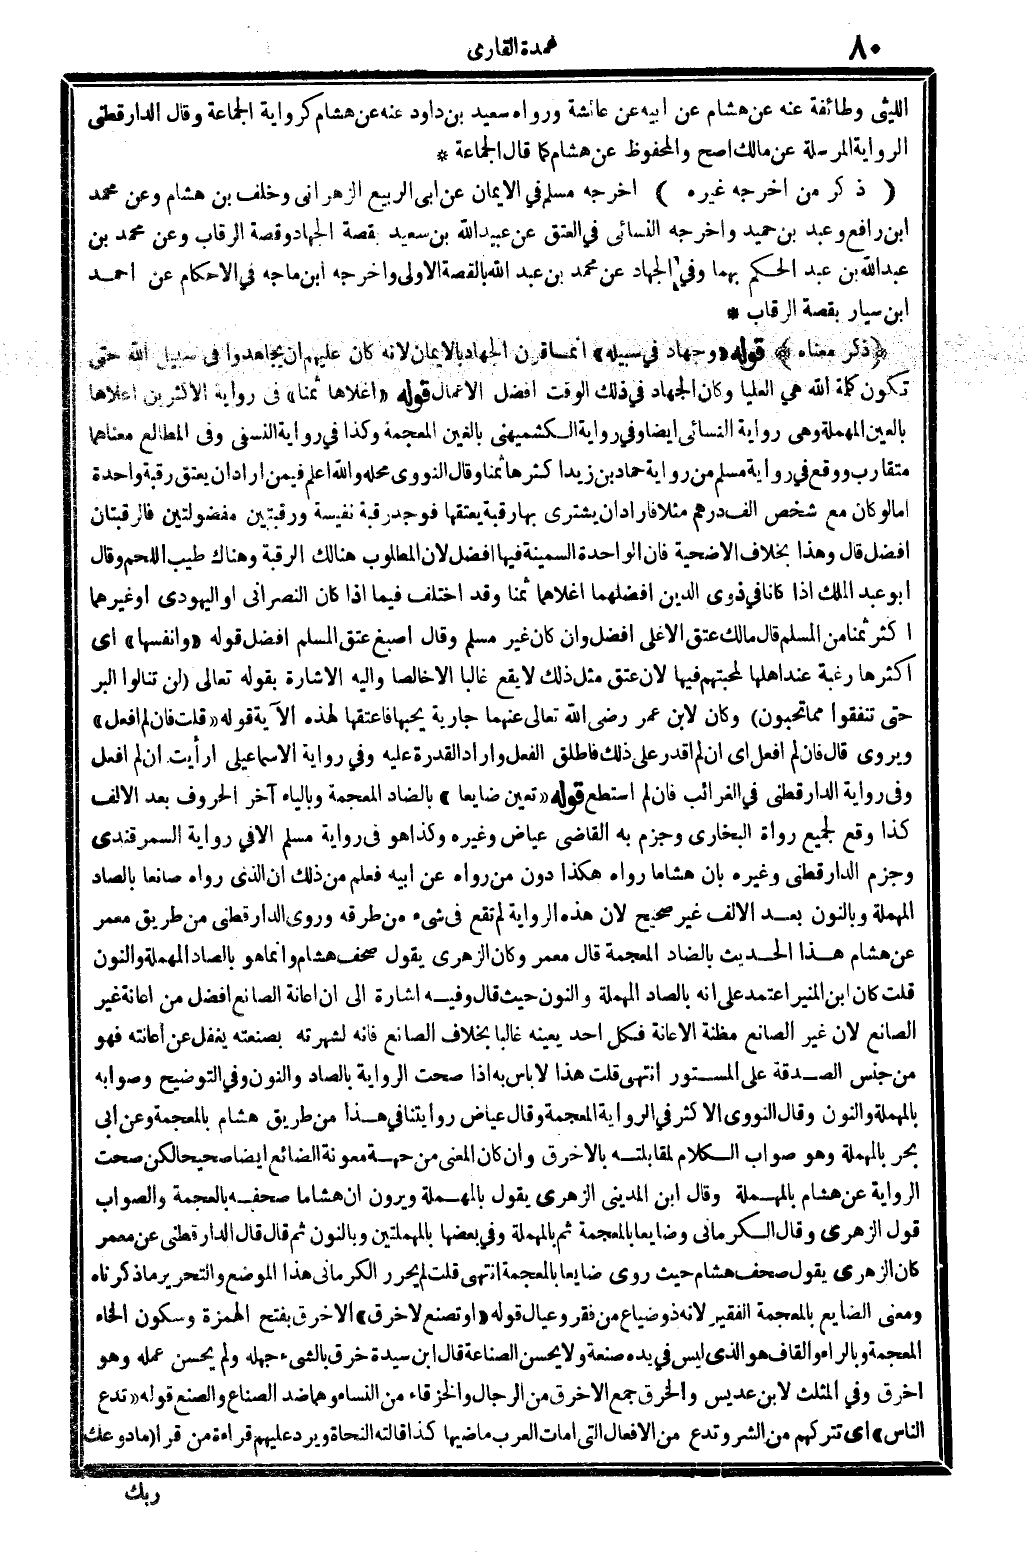 ٨٠
عمدة القارى
الليثى وطائفة عنه عن هشام عن ابيه عن عائشة ورواه سعيد بن داود عنه عن هشام كرواية الجماعة وقال الدارقطنى
الرواية المرسلة عن مالك اصح والمحفوظ عن هشام كما قال الجماعة *
( ذكر من اخرجه غيره ) اخرجه مسلم في الايمان عن ابى الربيع الزهرانى وخلف بن هشام وعن محمد
ابن رافع وعبد بن حميد واخرجه النسائى في العتق عن عبيد الله بن سعيد بقصة الجهاد وقصة الرقاب وعن محمد بن
عبد الله بن عبد الحكم بهما وفي الجهاد عن محمد بن عبد الله بالقصة الاولى واخرجه ابن ماجه في الاحكام عن احمد
ابن سيار بقصة الرقاب *
﴿ذكر معناه﴾ قوله «وجهاد في سبيله» انما قرن الجهاد بالايمان لانه كان عليهم ان يجاهدوا فى سبيل الله حتى
تكون كلمة الله هي العليا وكان الجهاد في ذلك الوقت افضل الاعمال قوله «اغلاها ثمنا» فى رواية الاكثرين اعلاها
بالعين المهملة وهى رواية النسائى ايضا وفي رواية الكشميهنى بالغين المعجمة وكذا في رواية النسفى وفى المطالع معناهما
متقارب ووقع في رواية مسلم من رواية حماد بن زيد اكثرها ثمنا وقال النووى محله والله اعلم فيمن اراد ان يعتق رقبة واحدة
امالو كان مع شخص الف درهم مثلا فاراد ان يشترى بها رقبة يعتقها فوجد رقبة نفيسة ورقبتين مفضولتين فالرقبتان
افضل قال وهذا بخلاف الاضحية فان الواحدة السمينة فيها افضل لان المطلوب هنالك الرقبة وهناك طيب اللحم وقال
ابو عبد الملك اذا كانا في ذوى الدين افضلهما اغلاهما ثمنا وقد اختلف فيما اذا كان النصرانى او اليهودى او غيرهما
اكثر ثمنا من المسلم قال مالك عتق الاغلى افضل وان كان غير مسلم وقال اصبغ عتق المسلم افضل قوله «وانفسها» اى
اكثرها رغبة عند اهلها لمحبتهم فيها لان عتق مثل ذلك لا يقع غالبا الا خالصا واليه الاشارة بقوله تعالى (لن تنالوا البر
حتى تنفقوا مما تحبون) وكان لابن عمر رضى الله تعالى عنهما جارية يحبها فاعتقها لهذه الآية قوله «قلت فان لم افعل»
ويروى قال فان لم افعل اى ان لم اقدر على ذلك فاطلق الفعل واراد القدرة عليه وفي رواية الاسماعيلى ارأيت ان لم افعل
وفى رواية الدارقطنى في الغرائب فان لم استطع قوله «تعين ضايعا» بالضاد المعجمة وبالياء آخر الحروف بعد الالف
كذا وقع لجميع رواة البخارى وجزم به القاضى عياض وغيره وكذا هو فى رواية مسلم الا في رواية السمرقندى
وجزم الدارقطنى وغيره بان هشاما رواه هكذا دون من رواه عن ابيه فعلم من ذلك ان الذى رواه صانعا بالصاد
المهملة وبالنون بعد الالف غير صحيح لان هذه الرواية لم تقع فى شىء من طرقه وروى الدارقطنى من طريق معمر
عن هشام هذا الحديث بالضاد المعجمة قال معمر وكان الزهرى يقول صحف هشام وانما هو بالصاد المهملة والنون
قلت كان ابن المنير اعتمد على انه بالصاد المهملة والنون حيث قال وفيه اشارة الى ان اعانة الصانع افضل من اعانة غير
الصانع لان غير الصانع مظنة الاعانة فكل احد يعينه غالبا بخلاف الصانع فانه لشهرته بصنعته يغفل عن اعانته فهو
من جنس الصدقة على المستور انتهى قلت هذا لا باس به اذا صحت الرواية بالصاد والنون وفي التوضيح وصوابه
بالمهملة والنون وقال النووى الاكثر في الرواية المعجمة وقال عياض روايتنا في هذا من طريق هشام بالمعجمة وعن أبى
بحر بالمهملة وهو صواب الكلام لمقابلته بالاخرق وان كان المعنى من جهة معونة الضائع ايضا صحيحا لكن صحت
الرواية عن هشام بالمهملة وقال ابن المدينى الزهرى يقول بالمهملة ويرون ان هشاما صحفه بالعجمة والصواب
قول الزهرى وقال الكرمانى وضايعا بالمعجمة ثم بالمهملة وفي بعضها بالمهملتين وبالنون ثم قال قال الدارقطنى عن معمر
كان الزهرى يقول صحف هشام حيث روى ضايعا بالمعجمة انتهى قلت لم يحرر الكرمانى هذا الموضع والتحرير ما ذكرناه
ومعنى الضايع بالمعجمة الفقير لانه ذو ضياع من فقر وعيال قوله «او تصنع لاخرق» الاخرق بفتح الهمزة وسكون الخاء
المعجمة وبالراء والقاف هو الذى ليس في يده صنعة ولا يحسن الصناعة قال ابن سيدة خرق بالشىء جهله ولم يحسن عمله وهو
اخرق وفي المثلث لابن عديس والخرق جمع الاخرق من الرجال والخرقاء من النساء وهما ضد الصناع والصنع قوله «تدع
الناس» اى تتركهم من الشر وتدع من الافعال التى امات العرب ماضيها كذا قالته النحاة ويرد عليهم قراءة من قرا (ما ودعك
ربك